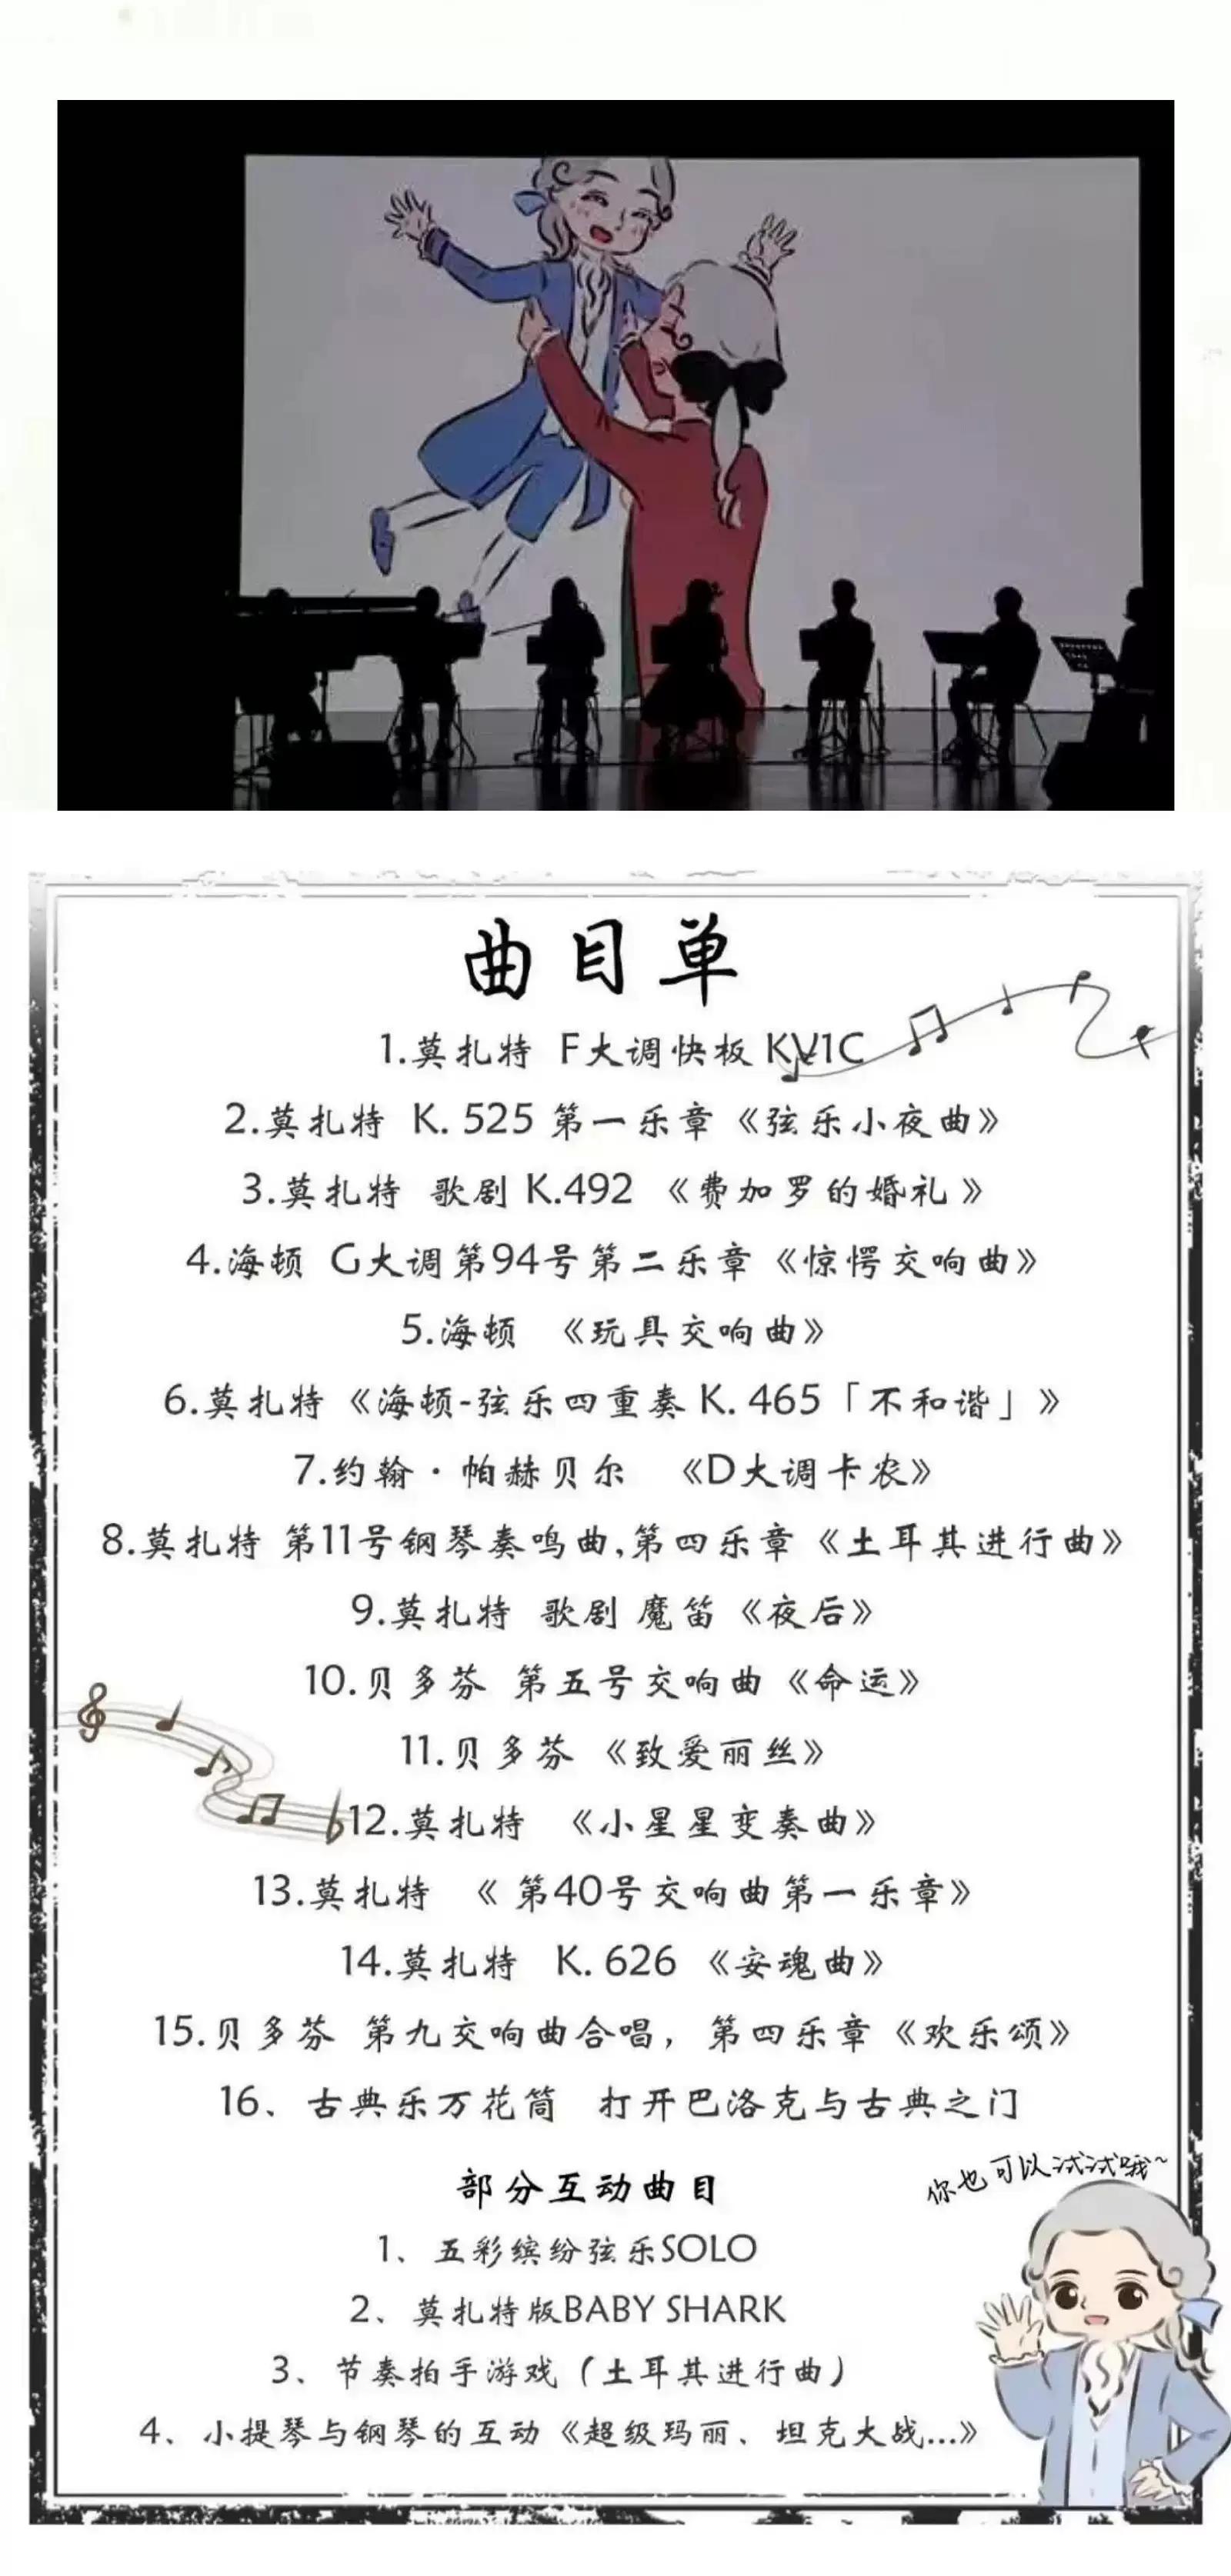 曲目单
1.莫扎特 F大调快板 KV1C
2.莫扎特 K. 525 第一乐章《弦乐小夜曲》
3.莫扎特 歌剧 K.492 《费加罗的婚礼》
4.海顿 G大调第94号第二乐章《惊愕交响曲》
5.海顿 《玩具交响曲》
6.莫扎特《海顿-弦乐四重奏 K. 465「不和谐」》
7.约翰·帕赫贝尔 《D大调卡农》
8.莫扎特 第11号钢琴奏鸣曲,第四乐章《土耳其进行曲》
9.莫扎特 歌剧 魔笛《夜后》
10.贝多芬 第五号交响曲《命运》
11.贝多芬 《致爱丽丝》
12.莫扎特 《小星星变奏曲》
13.莫扎特 《 第40号交响曲第一乐章》
14.莫扎特 K. 626 《安魂曲》
15.贝多芬 第九交响曲合唱，第四乐章《欢乐颂》
16、古典乐万花筒 打开巴洛克与古典之门
部分互动曲目
你也可以试试哦~
1、五彩缤纷弦乐SOLO
2、莫扎特版BABY SHARK
3、节奏拍手游戏（土耳其进行曲）
4、小提琴与钢琴的互动《超级玛丽、坦克大战...》